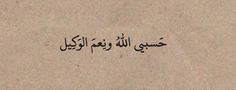 حَسبيي اللهُ ونِعمَ الوَكِيل